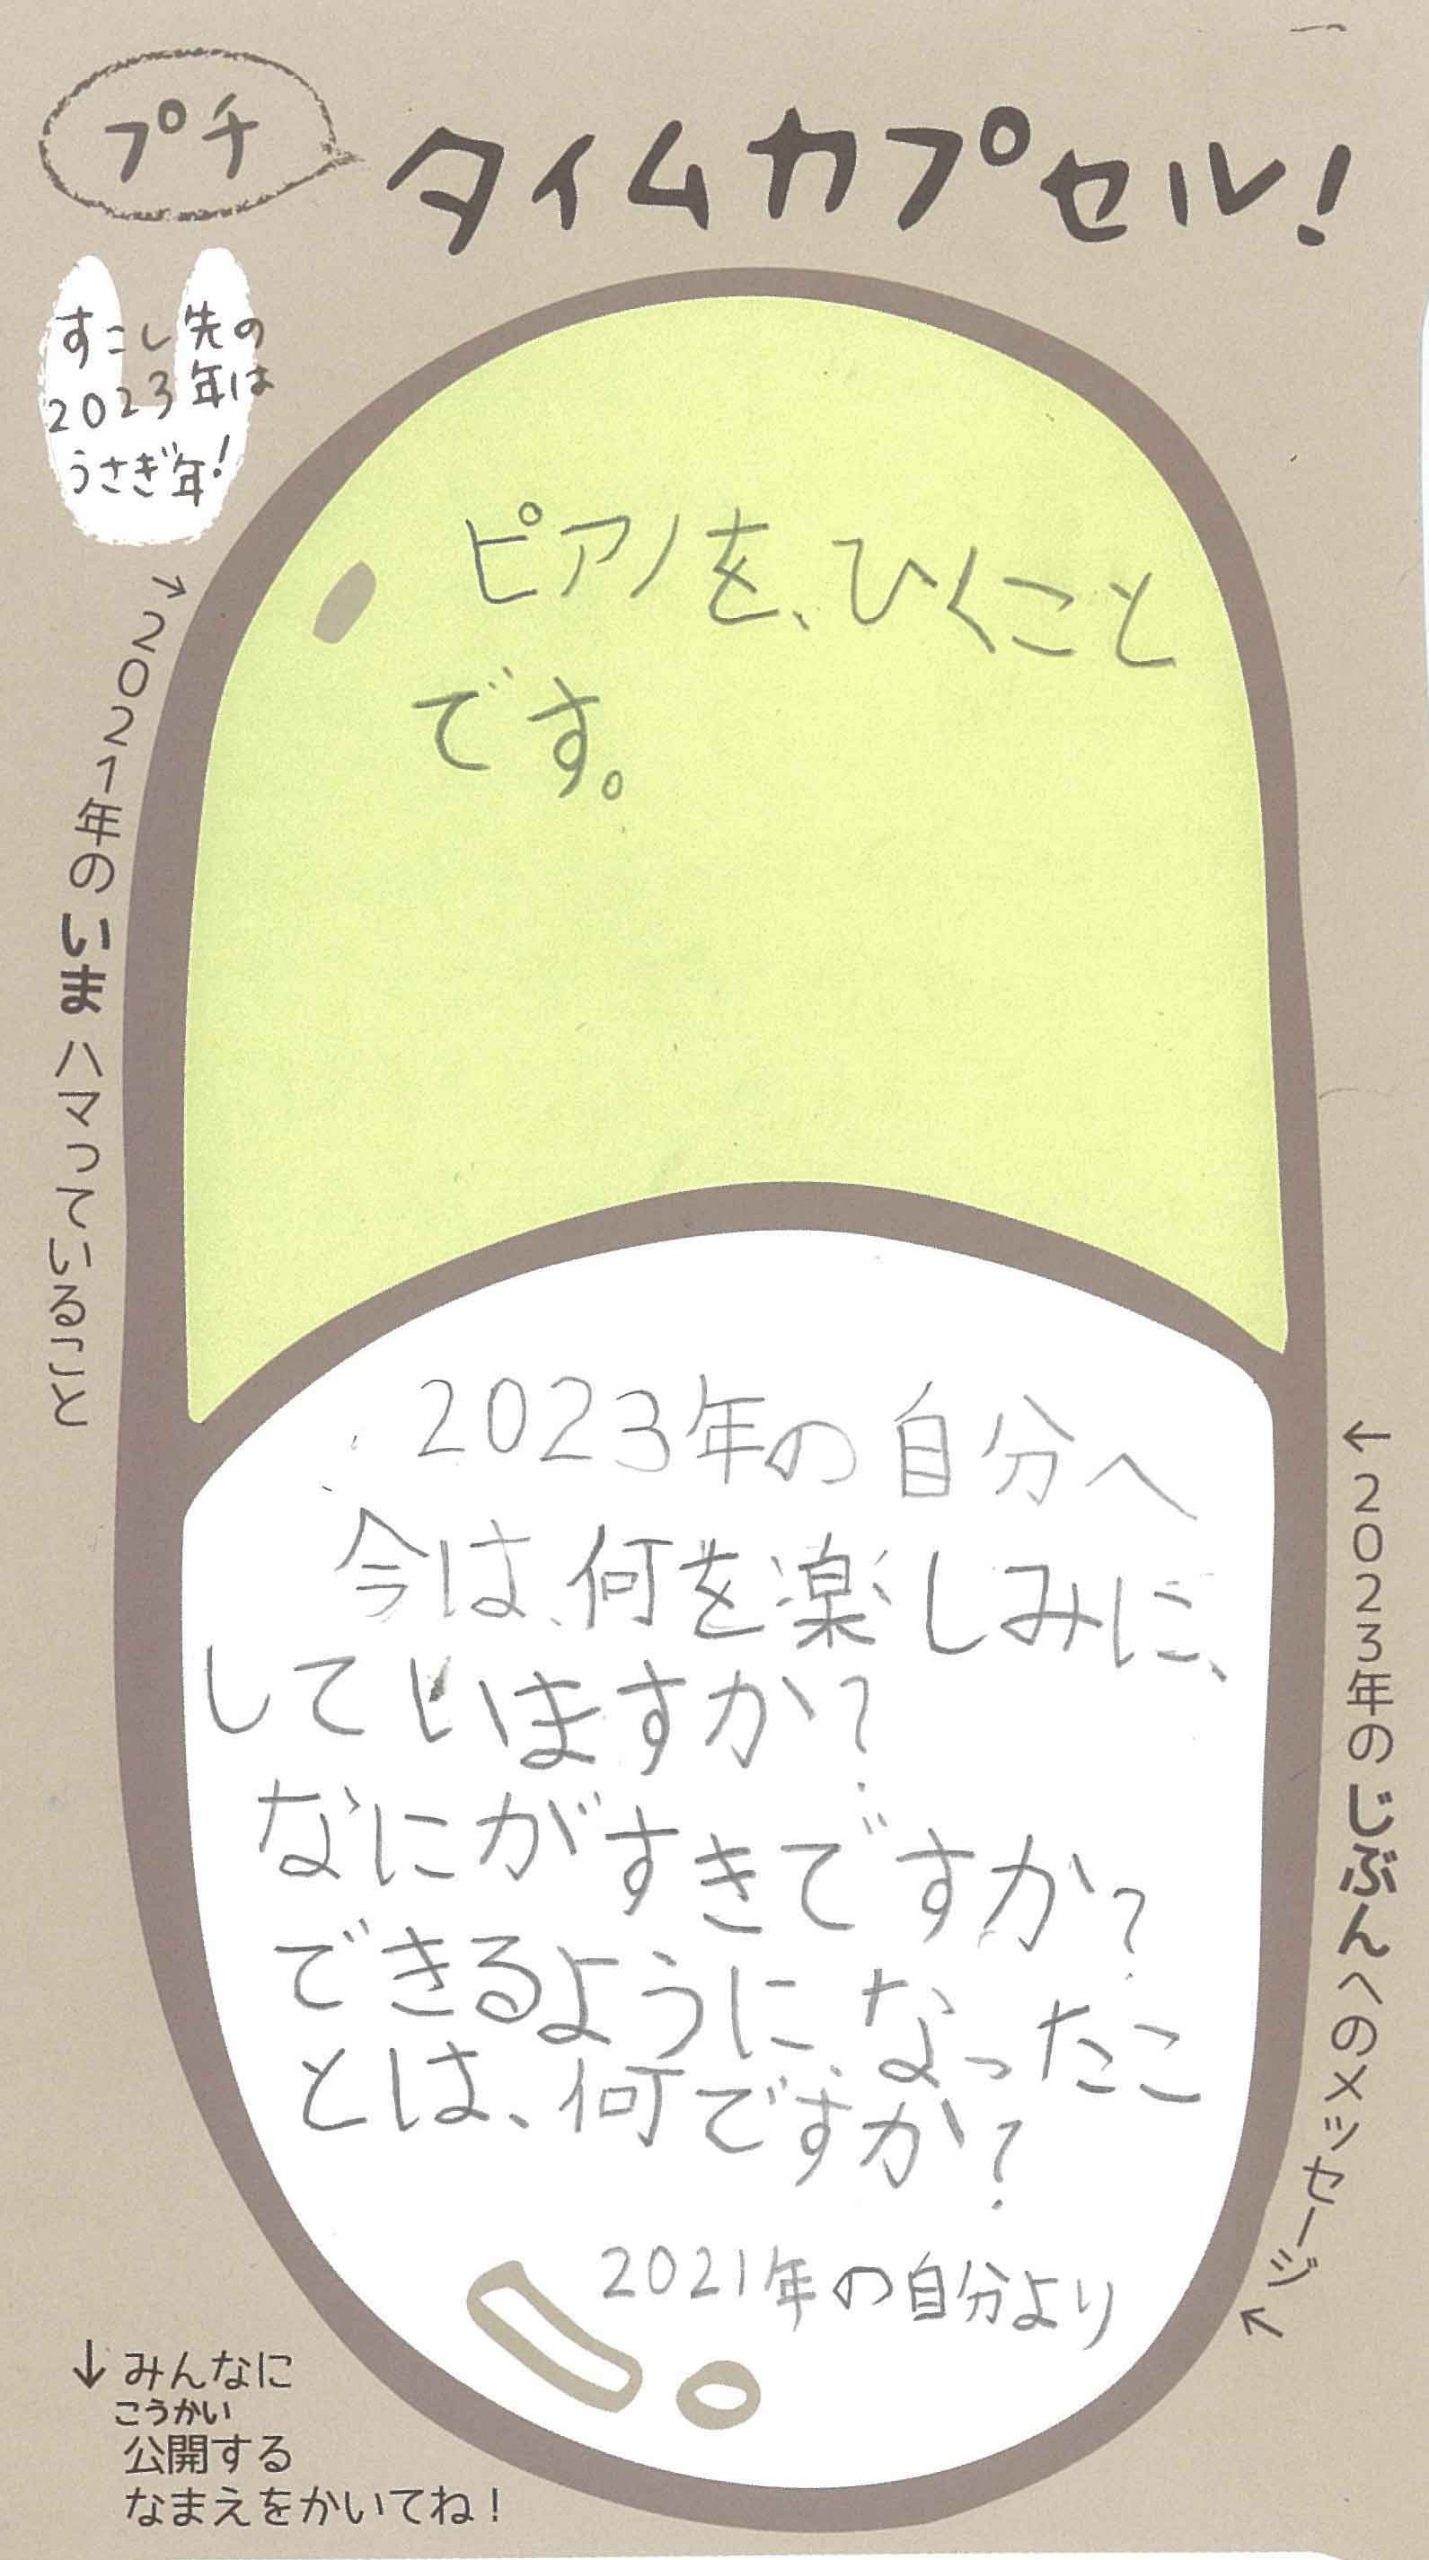 プチ
タイムカプセル！
すこし先の
2023年は
うさぎ年！
→2021年のいまハマっていること
ピアノを、ひくこと
です。
2023年の自分へ
今は、何を楽しみに、
していますか？
なにがすきですか？
できるように、なったこ
とは、何ですか？
2021年の自分より
←2023年のじぶんへのメッセージ
↓みんなに
こうかい
公開する
なまえをかいてね！